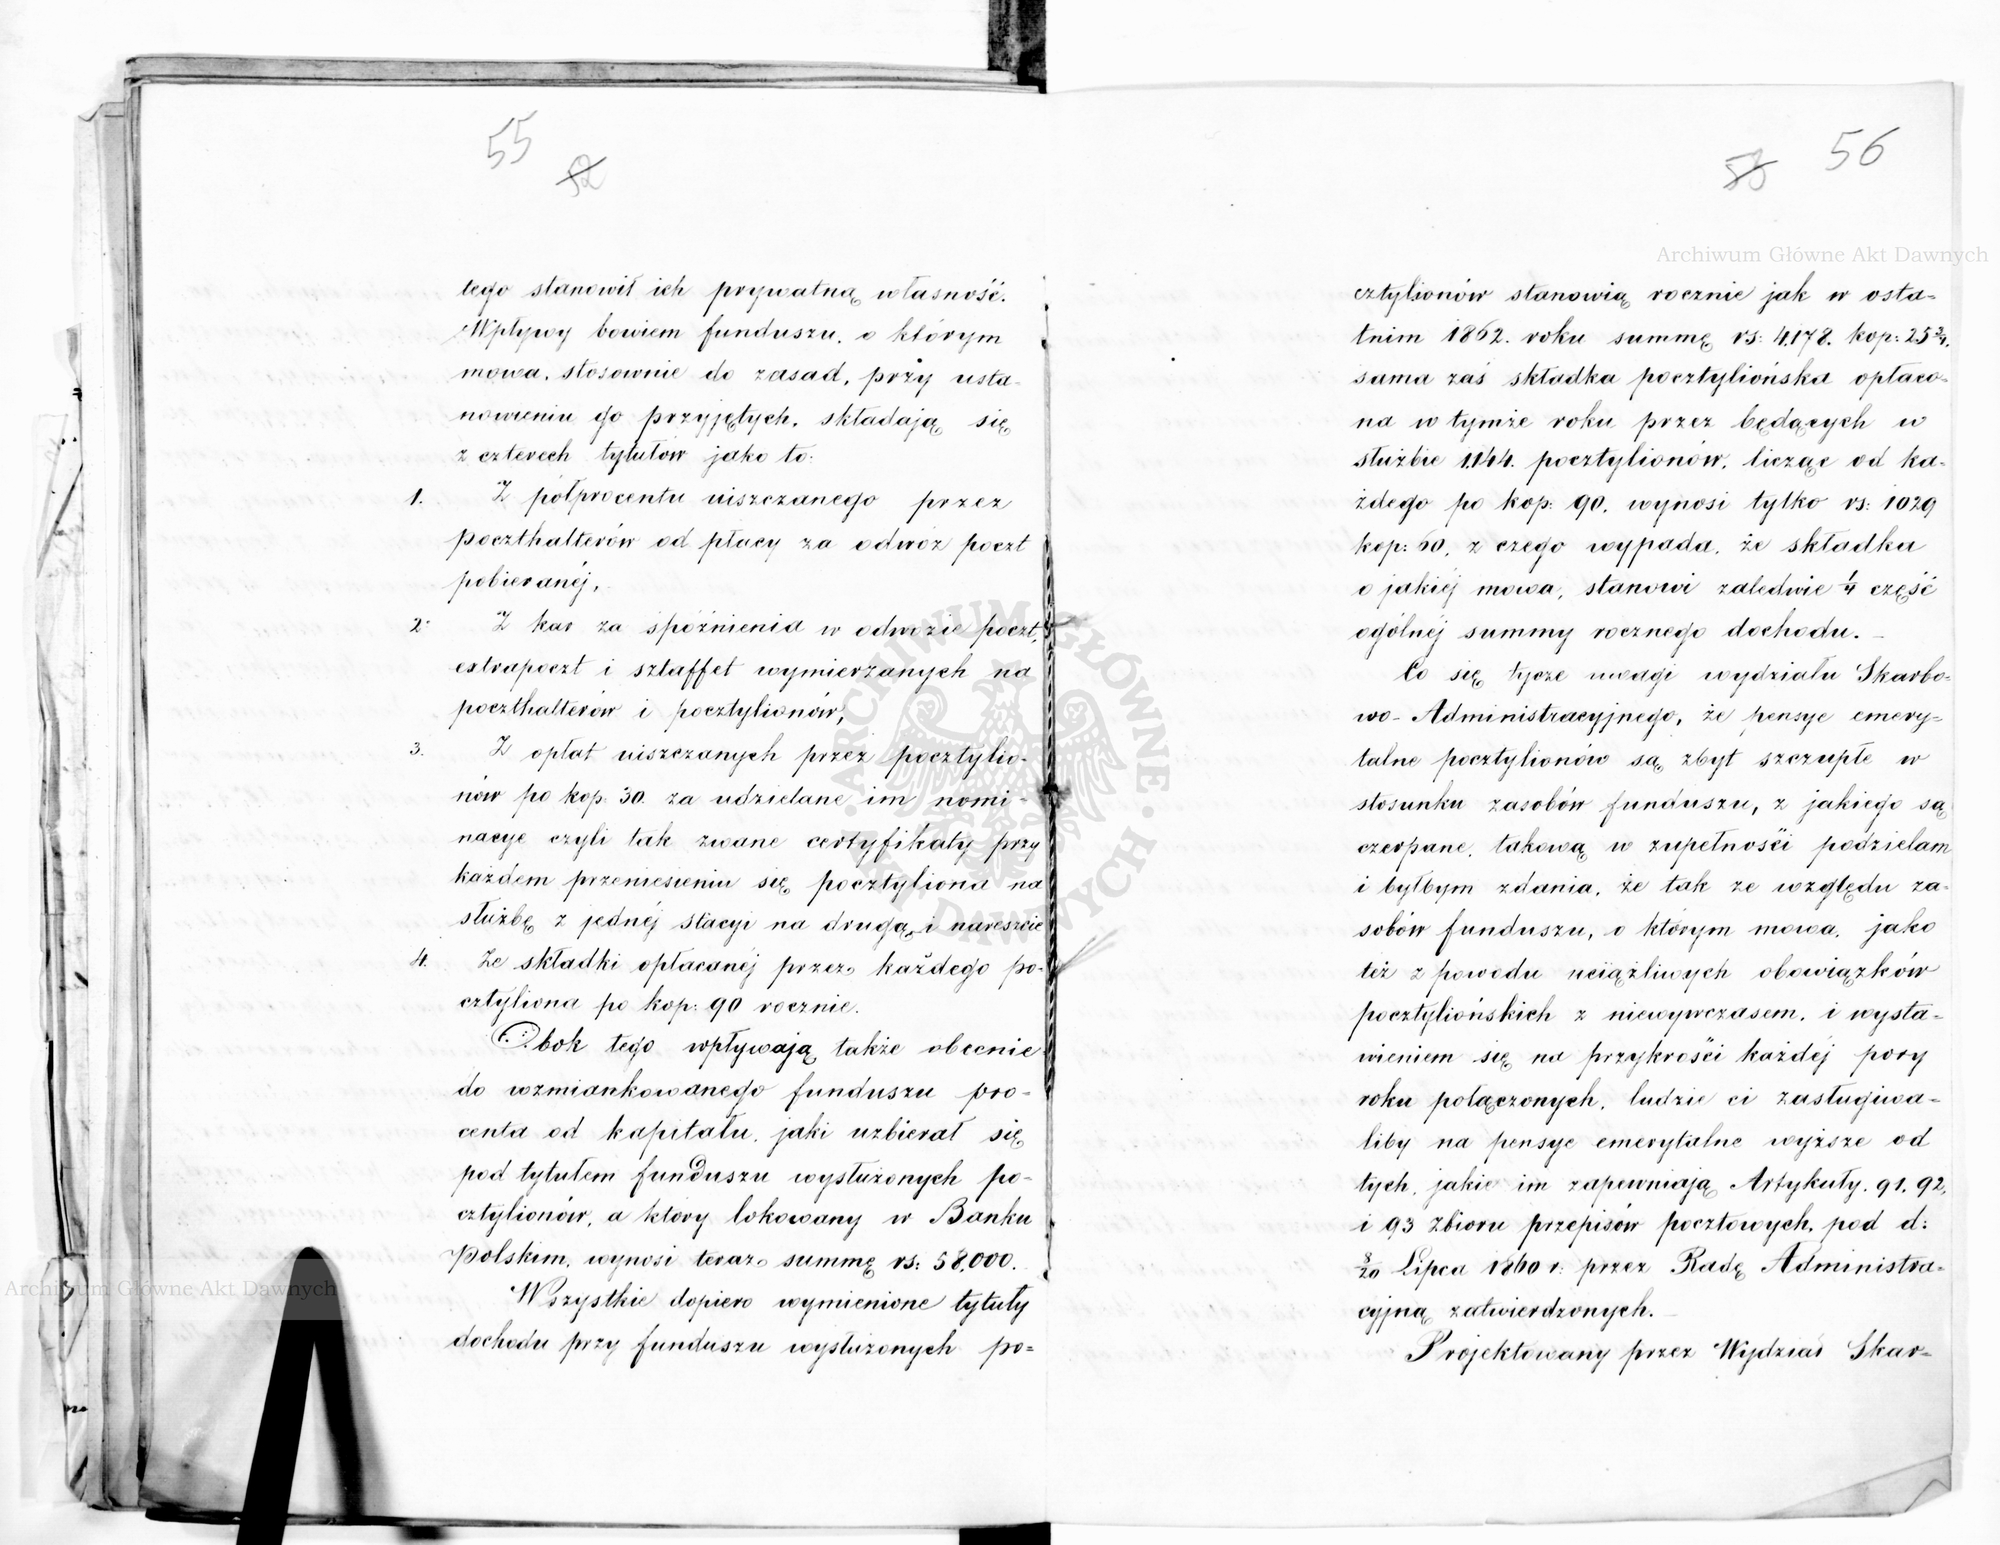 55
52
tego stanowił ich prywatną własność.
Wpływy bowiem funduszu, o którym
mowa, stosownie do zasad, przy usta-
nowieniu go przyjętych, składają się
z czterech tytułów jako to:
1. Z półprocentu uiszczanego przez
poczthalterów od płacy za odwóz poczt
pobieranéj,
2. Z kar za spóźnienia w odwozie poczt,
extrapoczt i sztaffet wymierzanych na
poczthalterów i pocztylionów,
3. Z opłat uiszczanych przez pocztylio-
nów po kop: 30. za udzielane im nomi-
nacye czyli tak zwane certyfikaty przy
każdem przeniesieniu się pocztyliona na
służbę z jednéj stacyi na drugą, i nareszcie
4. Ze składki opłacanéj przez każdego po-
cztyliona po kop: 90 rocznie.
Obok tego wpływają także obecnie
do wzmiankowanego funduszu pro-
centa od kapitału, jaki uzbierał się
pod tytułem funduszu wysłużonych po-
cztylionów, a który lokowany w Banku
Polskim, wynosi teraz summę rs: 58,000.
Wszystkie dopiero wymienione tytuły
dochodu przy funduszu wysłużonych po=
53
56
cztylionów stanowią rocznie jak w osta=
tnim 1862. roku summę rs: 4,178. kop: 25 3/4,
sama zaś składka pocztyliońska opłaco=
na w tymże roku przez będących w
służbie 1,144. pocztylionów, licząc od ka-
żdego po kop: 90, wynosi tylko rs: 1029
kop: 60, z czego wypada, że składka
o jakiéj mowa, stanowi zaledwie 1/4 część
ogólnéj summy rocznego dochodu. –
Co się tycze uwagi wydziału Skarbo=
wo- Administracyjnego, że pensye emery=
talne pocztylionów są zbyt szczupłe w
stosunku zasobów funduszu, z jakiego są
czerpane, takową w zupełności podzielam
i byłbym zdania, że tak ze względu za-
sobów funduszu, o którym mowa, jako
też z powodu uciążliwych obowiązków
pocztyliońskich z niewywczasem, i wysta-
wieniem się na przykrości każdéj pory
roku połączonych, ludzie ci zasługiwa=
liby na pensye emerytalne wyższe od
tych, jakie im zapewniają Artykuły. 91, 92,
i 93 zbioru przepisów pocztowych, pod d:
8/20 Lipca 1860 r: przez Radę Administra=
cyjną zatwierdzonych. –
Projektowany przez Wydział Skar=
Archiwum Główne Akt Dawnych
Archiwum Główne Akt Dawnych
ARCHIWUM GŁÓWNE AKT DAWNYCH